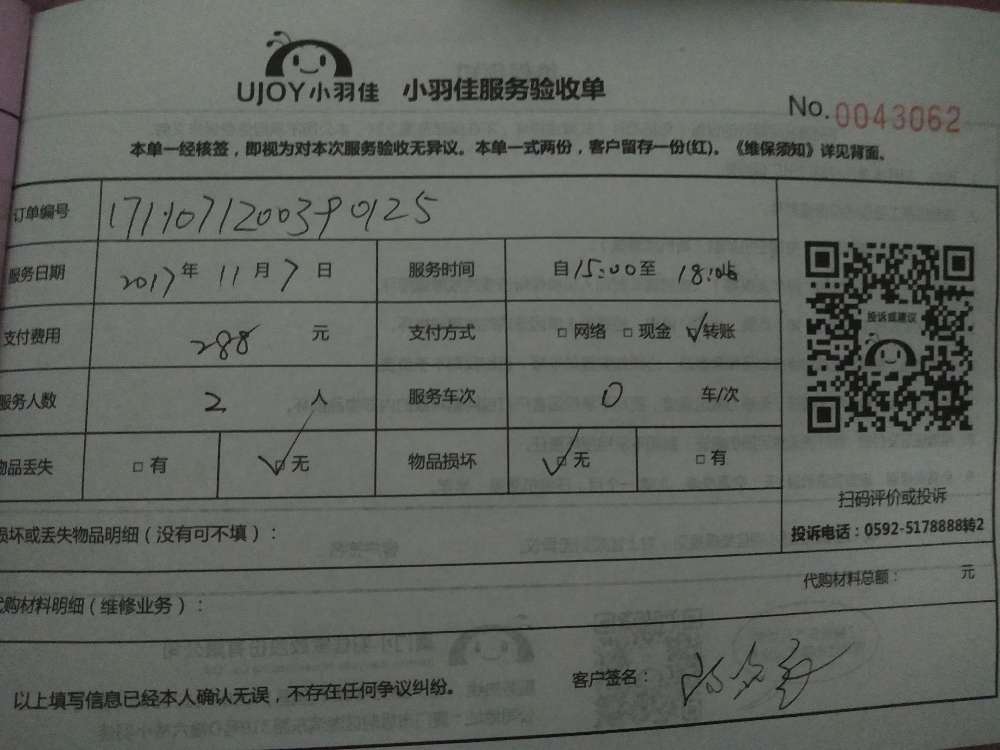 UJOY小羽佳 小羽佳服务验收单
No. 0043062
本单一经核签，即视为对本次服务验收无异议。本单一式两份，客户留存一份(红)。《维保须知》详见背面。
订单编号 1711071200390125
服务日期 2017年11月7日 服务时间 自15:00至18:06
支付费用 288 元 支付方式 □网络 □现金 ☑转账
服务人数 2 人 服务车次 0 车/次
投诉或建议
物品丢失 □有 ☑无 物品损坏 ☑无 □有
扫码评价或投诉
投诉电话：0592-5178888转2
损坏或丢失物品明细（没有可不填）：
代购材料总额： 元
代购材料明细（维修业务）：
以上填写信息已经本人确认无误，不存在任何争议纠纷。 客户签名：